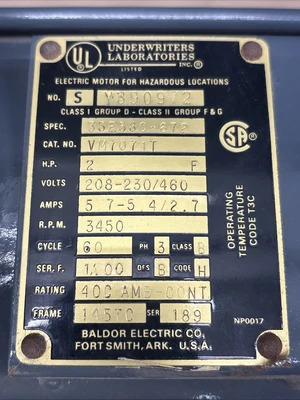 UL
UNDERWRITERS
LABORATORIES
LISTED INC.®
ELECTRIC MOTOR FOR HAZARDOUS LOCATIONS
NO. S
CLASS I GROUP D - CLASS II GROUP F & G
SPEC.
CAT. NO. VM7071T
H.P. 2 F
VOLTS 208-230/460
AMPS 5.7-5.4/2.7
R.P.M. 3450
CYCLE 60 PH 3 CLASS B
SER. F. 1.00 DES B CODE H
RATING 40C AMB-CONT
FRAME 145TC SER 189
BALDOR ELECTRIC CO.
FORT SMITH, ARK. U.S.A.
SA
OPERATING
TEMPERATURE
CODE T3C
NP0017